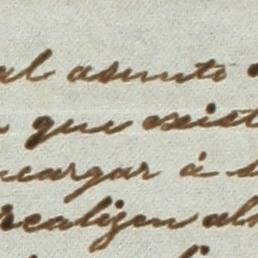 al asunto
que exist
ncargar á s
realizen al